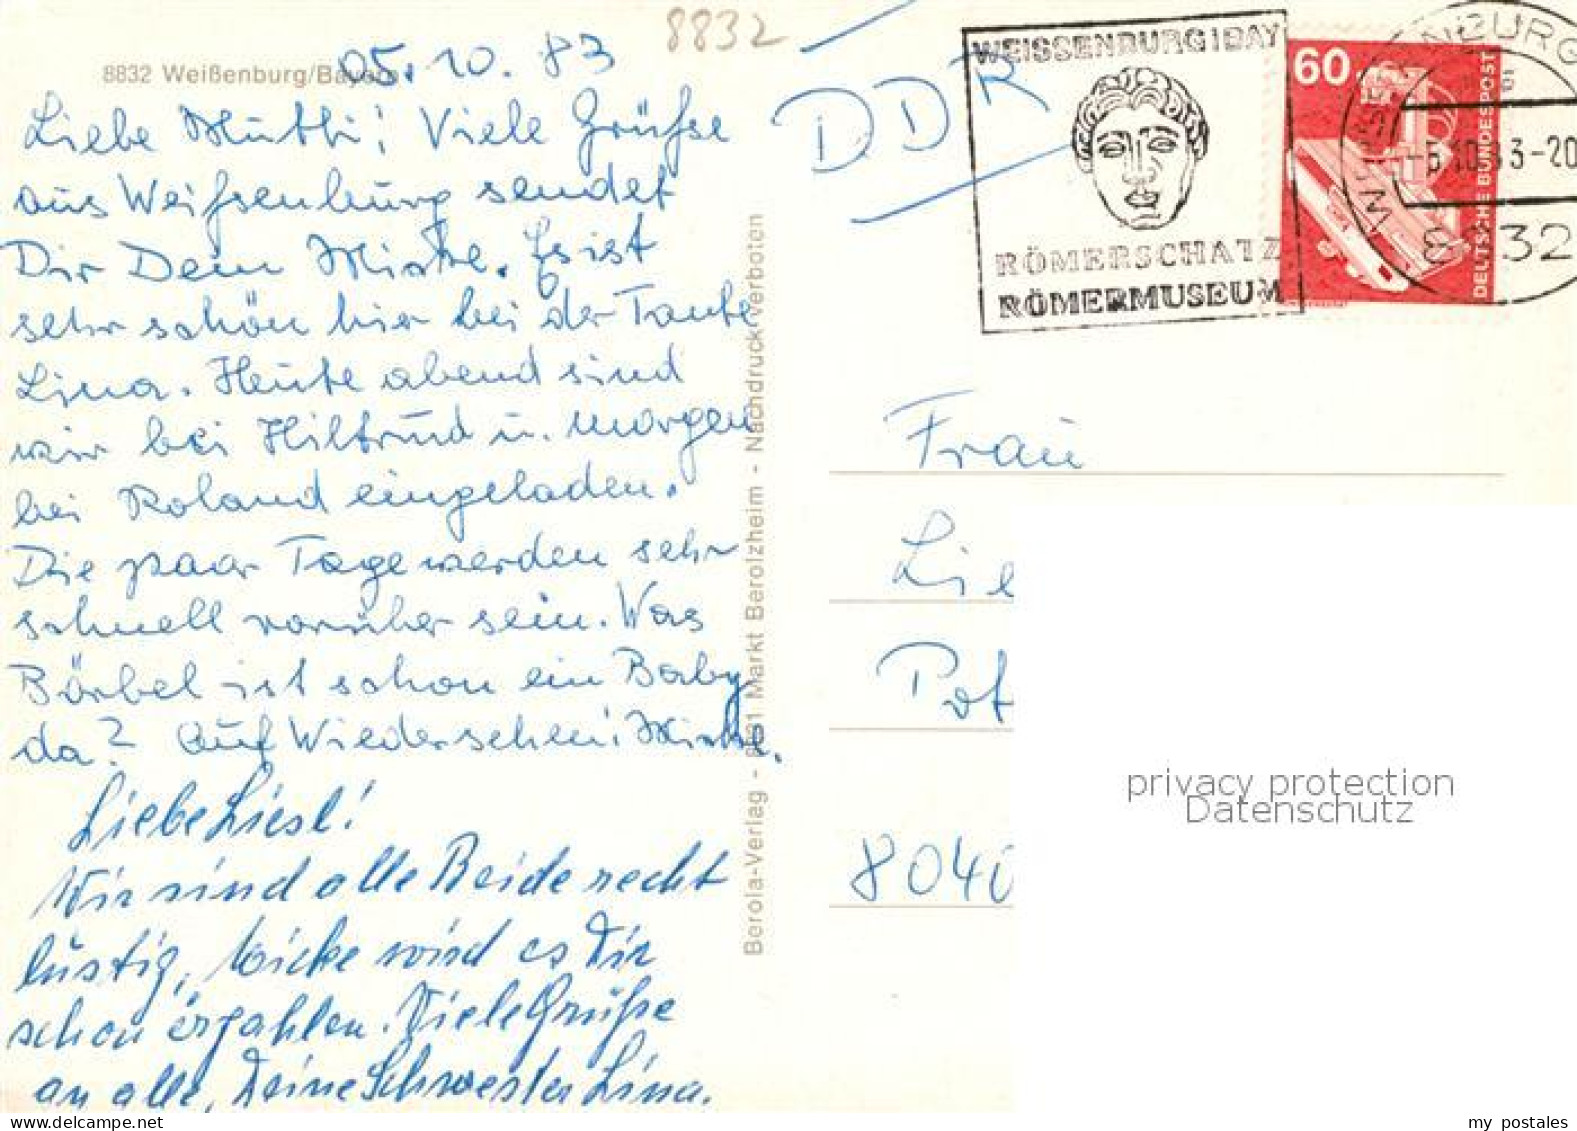 8832
8832 Weißenburg/Bayern
05.10.83
Liebe Mutti! Viele Grüße
aus Weißenburg sendet
Dir Dein Micke. Es ist
sehr schön hier bei der Tante
Lina. Heute abend sind
wir bei Hiltrud u. morgen
bei Roland eingeladen.
Die paar Tage werden sehr
schnell vorüber sein. Was
Bärbel ist schon ein Baby
da? Auf Wiedersehen! Micke.
Liebe Liesl!
Wir sind alle Beide recht
lustig, Micke wird es Dir
schon erzählen. Viele Grüße
an alle, Deine Schwester Lina.
Berola-Verlag - 8831 Markt Berolzheim - Nachdruck verboten
DDR
WEISSENBURG I BAY
RÖMERSCHATZ
RÖMERMUSEUM
60
DEUTSCHE BUNDESPOST
-5.10.83-20
Frau
Lie
Pot
8040
privacy protection
Datenschutz
my postales